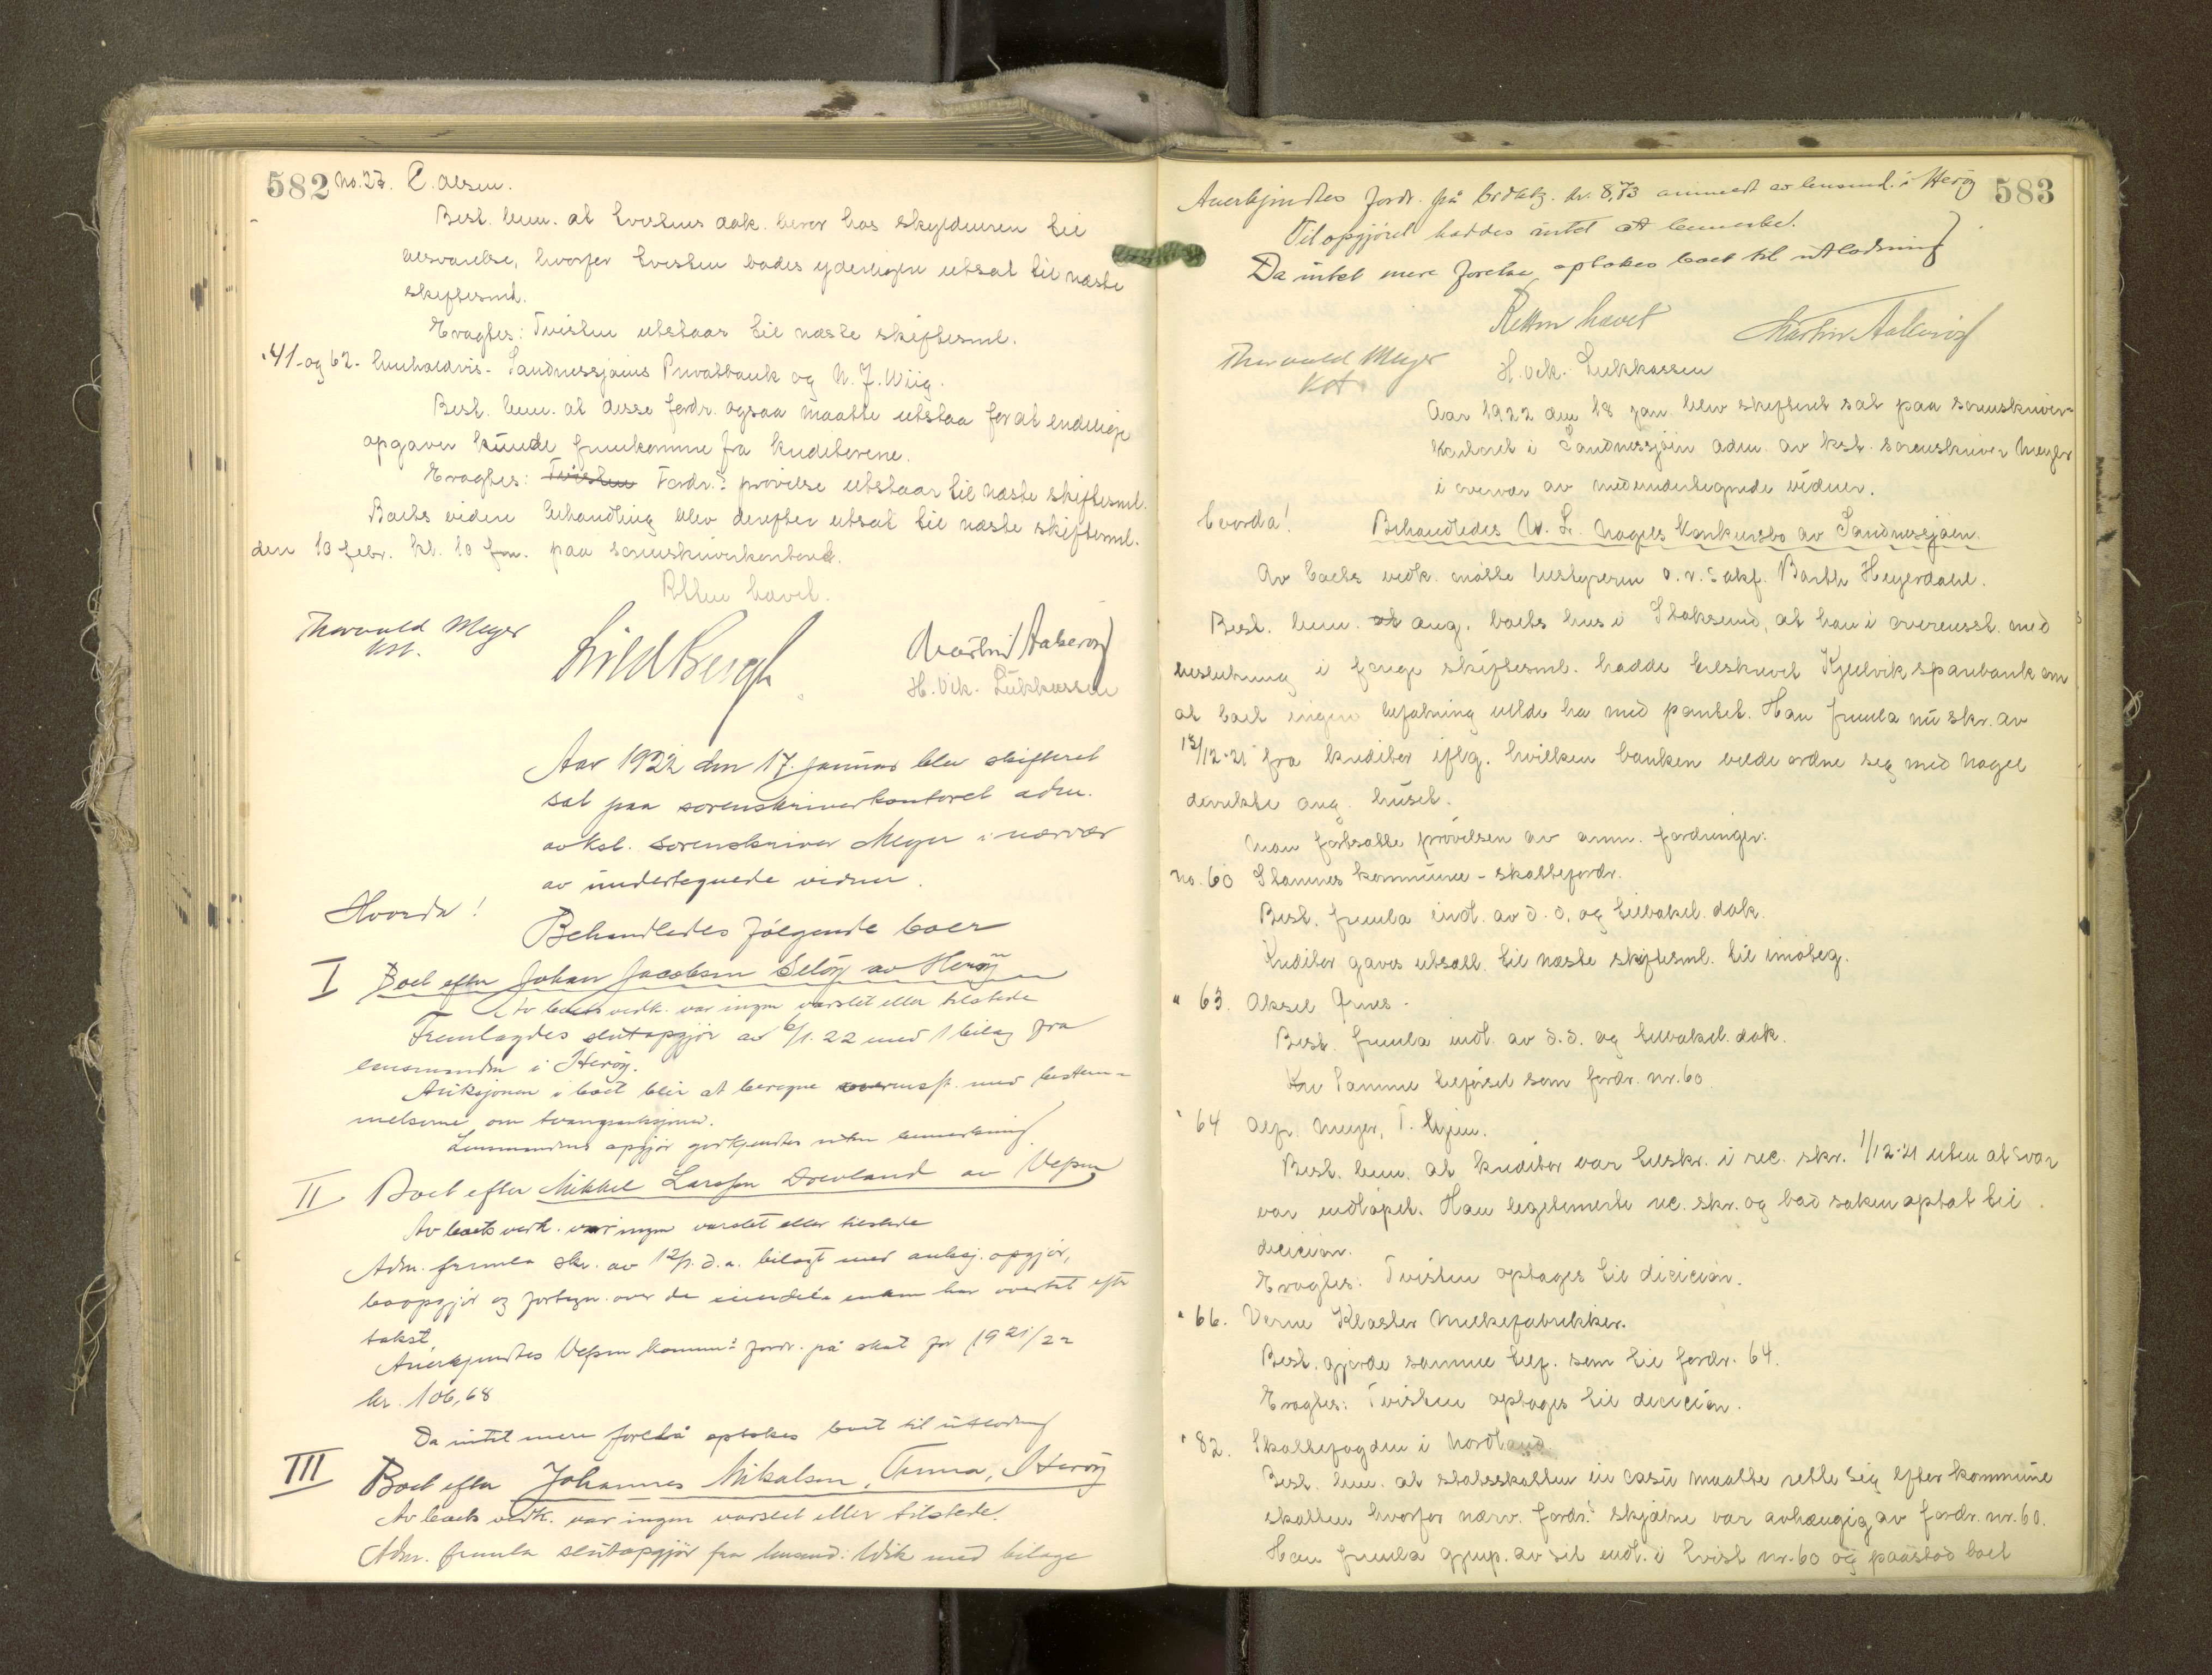 582 No. 27. C. Olsen.
Best. bem. at tvistens dok. beror hos skyldneren til
besvarelse, hvorfor tvisten bades yderligere utsat til næste
skiftesml.
Eragtes: Tvisten utstaar til næste skiftesml.
" 41 og 62 - henholdsvis - Sandnessjøens Privatbank og N. J. Wiig.
Best. bem. at disse fordr. ogsaa maatte utstaa for at endelige
opgaver kunde fremkomme fra kreditorene.
Eragtes: Tvisten Fordr.s prøvelse utstaar til næste skiftesml.
Boets videre behandling blev derefter utsat til næste skiftesml.
den 10 febr. kl. 10 fm. paa sorenskriverkontoret.
Retten hævet.
Thorvald Meyer
kst.
Martin Aakerøy
H. Vik. Lukkassen
Aar 1922 den 17. januar blev skifteret
sat paa sorenskriverkontoret adm.
av kst. sorenskriver Meyer i nærvær
av undertegnede vidner.
Hvorda!
Behandledes følgende boer
I Boet efter Johan Jacobsen Seløy av Herøy
Av boets vedk. var ingen varslet eller tilstede
Fremlagdes slutopgjør av 6/1. 22 med 1 bilag fra
lensmanden i Herøy.
Auksjonen i boet blir at beregne overensst. med bestem-
melserne om tvangsauksjoner.
Lensmandens opgjør godkjendtes uten bemerkning.
II Boet efter Mikkel Larssen Drevland av Vefsn
Av boets vedk. var ingen varslet eller tilstede
Adm. fremla skr. av 12/1. d.a. bilagt med auksj. opgjør,
boopgjør og fortegn. over de eiendele enken har overtat efter
takst.
Anerkjendtes Vefsn komm.s fordr. på skat for 1921/22
kr. 106,68
Da intet mere forelå optokes boet til utlodning
III Boet efter Johannes Nikolsen, Tenna, Herøy
Av boets vedk. var ingen varslet eller tilstede.
Adm. fremla slutopgjør fra lensmd. Wik med bilage
583
Anerkjendtes fordr. på kr. 8,73 anmeldt av lensmd. i Herøy
Til opgjøret haddes intet at bemerke.
Da intet mere forelaa, optokes boet til utlodning
Retten hævet
Martin Aakerøy
Thorvald Meyer
kst.
H. Vik. Lukkassen
Aar 1922 den 18 jan. blev skifteret sat paa sorenskriver-
kontoret i Sandnessjøen adm. av kst. sorenskriver Meyer
i overvær av medundertegnede vidner.
hvorda!
Behandledes W. L. Nagels konkursbo av Sandnessjøen.
Av boets vedk. møtte bestyreren o.r.sakf. Barth Heyerdahl.
Best. bem. at ang. boets hus i Stoksund, at han i overensst. med
beslutning i forrige skiftesml. hadde tilskrevet Kjelvik sparebank om
at boet ingen befatning vilde ha med pantet. Han fremla nu skr. av
13/12-21 fra kreditor iflg. hvilken banken vilde ordne seg med Nagel
direkte ang. huset.
Man fortsatte prøvelsen av anm. fordringer:
No. 60 Stamnes kommune - skattefordr.
Best. fremla indl. av d.d. og tilbakel. dok.
Kreditor gaves utsætt. til næste skiftesml. til imøteg.
" 63. Aksel Øines -
Best. fremla indl. av d.d. og tilbakel. dok.
Samme tilførsel som fordr. nr. 60.
" 64 Alf. Meyer, T. hjem.
Best. bem. at kreditor var tilskr. i rec. skr. 1/12-21 uten at svar
var indløpet. Han legitimerte rec. skr. og bad saken optat til
dicicion.
Eragtes: Tvisten optages til dicicion.
" 66. Verne Kloster Melkefabrikker.
Best. gjorde samme tilf. som til fordr. 64.
Eragtes: Tvisten optages til dicicion.
" 82. Skattefogden i Nordland
Best. bem. at statsskatten in casu maatte rette sig efter kommune
skatten hvorfor nærv. fordr.s skjæbne var avhængig av fordr. nr. 60.
Han fremla gjenp. av sit indl. i tvist nr. 60 og paastod boet